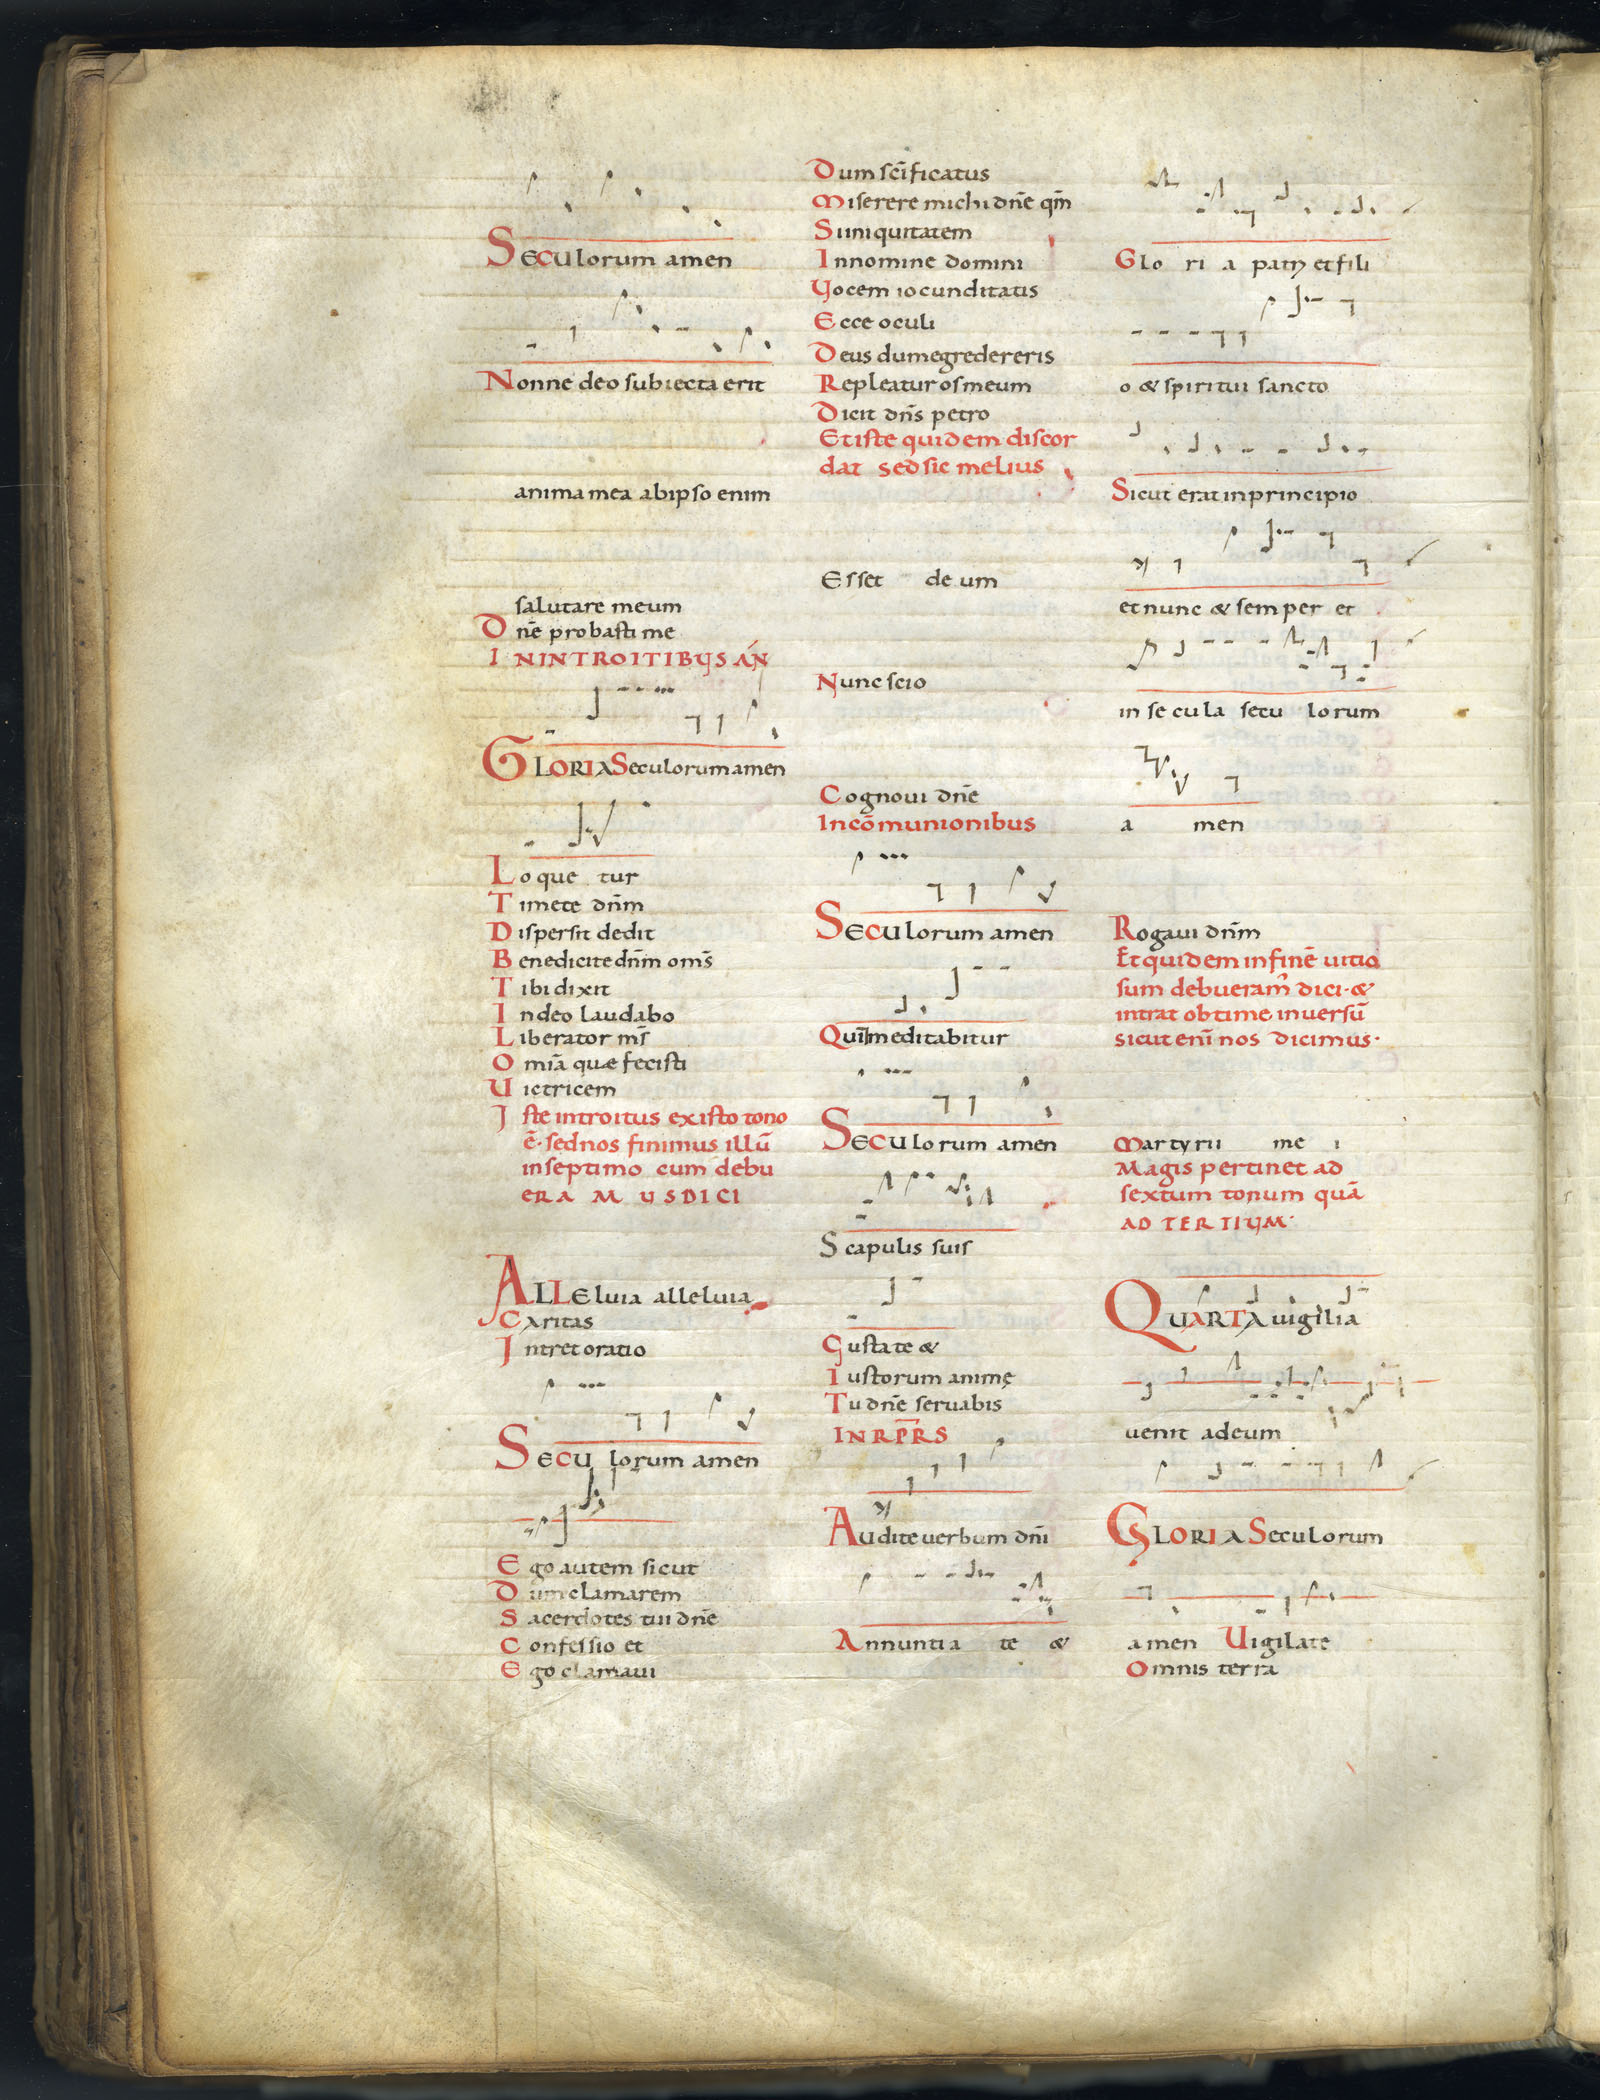 Seculorum amen
Nonne deo subiecta erit
anima mea ab ipso enim
salutare meum
Dnē probasti me
IN INTROITIBUS AÑ
GLORIA Seculorum amen
Loque tur
Timete dnm̄
Dispersit dedit
Benedicite dnm̄ oms̄
Tibi dixit
In deo laudabo
Liberator ms̄
Omīa quæ fecisti
Uictricem
Iste introitus ex isto tono
ē· sed nos finimus illū
in septimo cum debu
ERAMUS DICI
ALLEluia alleluia
Caritas
Intret oratio
Seculorum amen
Ego autem sicut
Dum clamarem
Sacerdotes tui dnē
Confessio et
Ego clamaui
Dum scīficatus
Miserere michi dnē qm̄
Si iniquitatem
In nomine domini
Vocem iocunditatis
Ecce oculi
Deus dum egredereris
Repleatur os meum
Dicit dns̄ petro
Et iste quidem discor
dat sed sic melius
Esset de um
Nunc scio
Cognoui dnē
In cōmunionibus
Seculorum amen
meditabitur
Seculorum amen
Scapulis suis
Gustate &
Iustorum animę
Tu dnē seruabis
IN RPRS
Audite uerbum dnī
Annuntia te &
Glo ri a patri et fili
o & spiritui sancto
Sicut erat in principio
et nunc & semper et
in se cula secu lorum
a men
Rogaui dnm̄
Et quidem in finē uitio
sum debueram̄ dici· &
intrat obtime in uersū
sicut enī nos dicimus·
Martyrii me i
Magis pertinet ad
sextum tonum quā
AD TERTIUM·
QUARTA uigilia
uenit ad eum
GLORIA Seculorum
amen Uigilate
Omnis terra